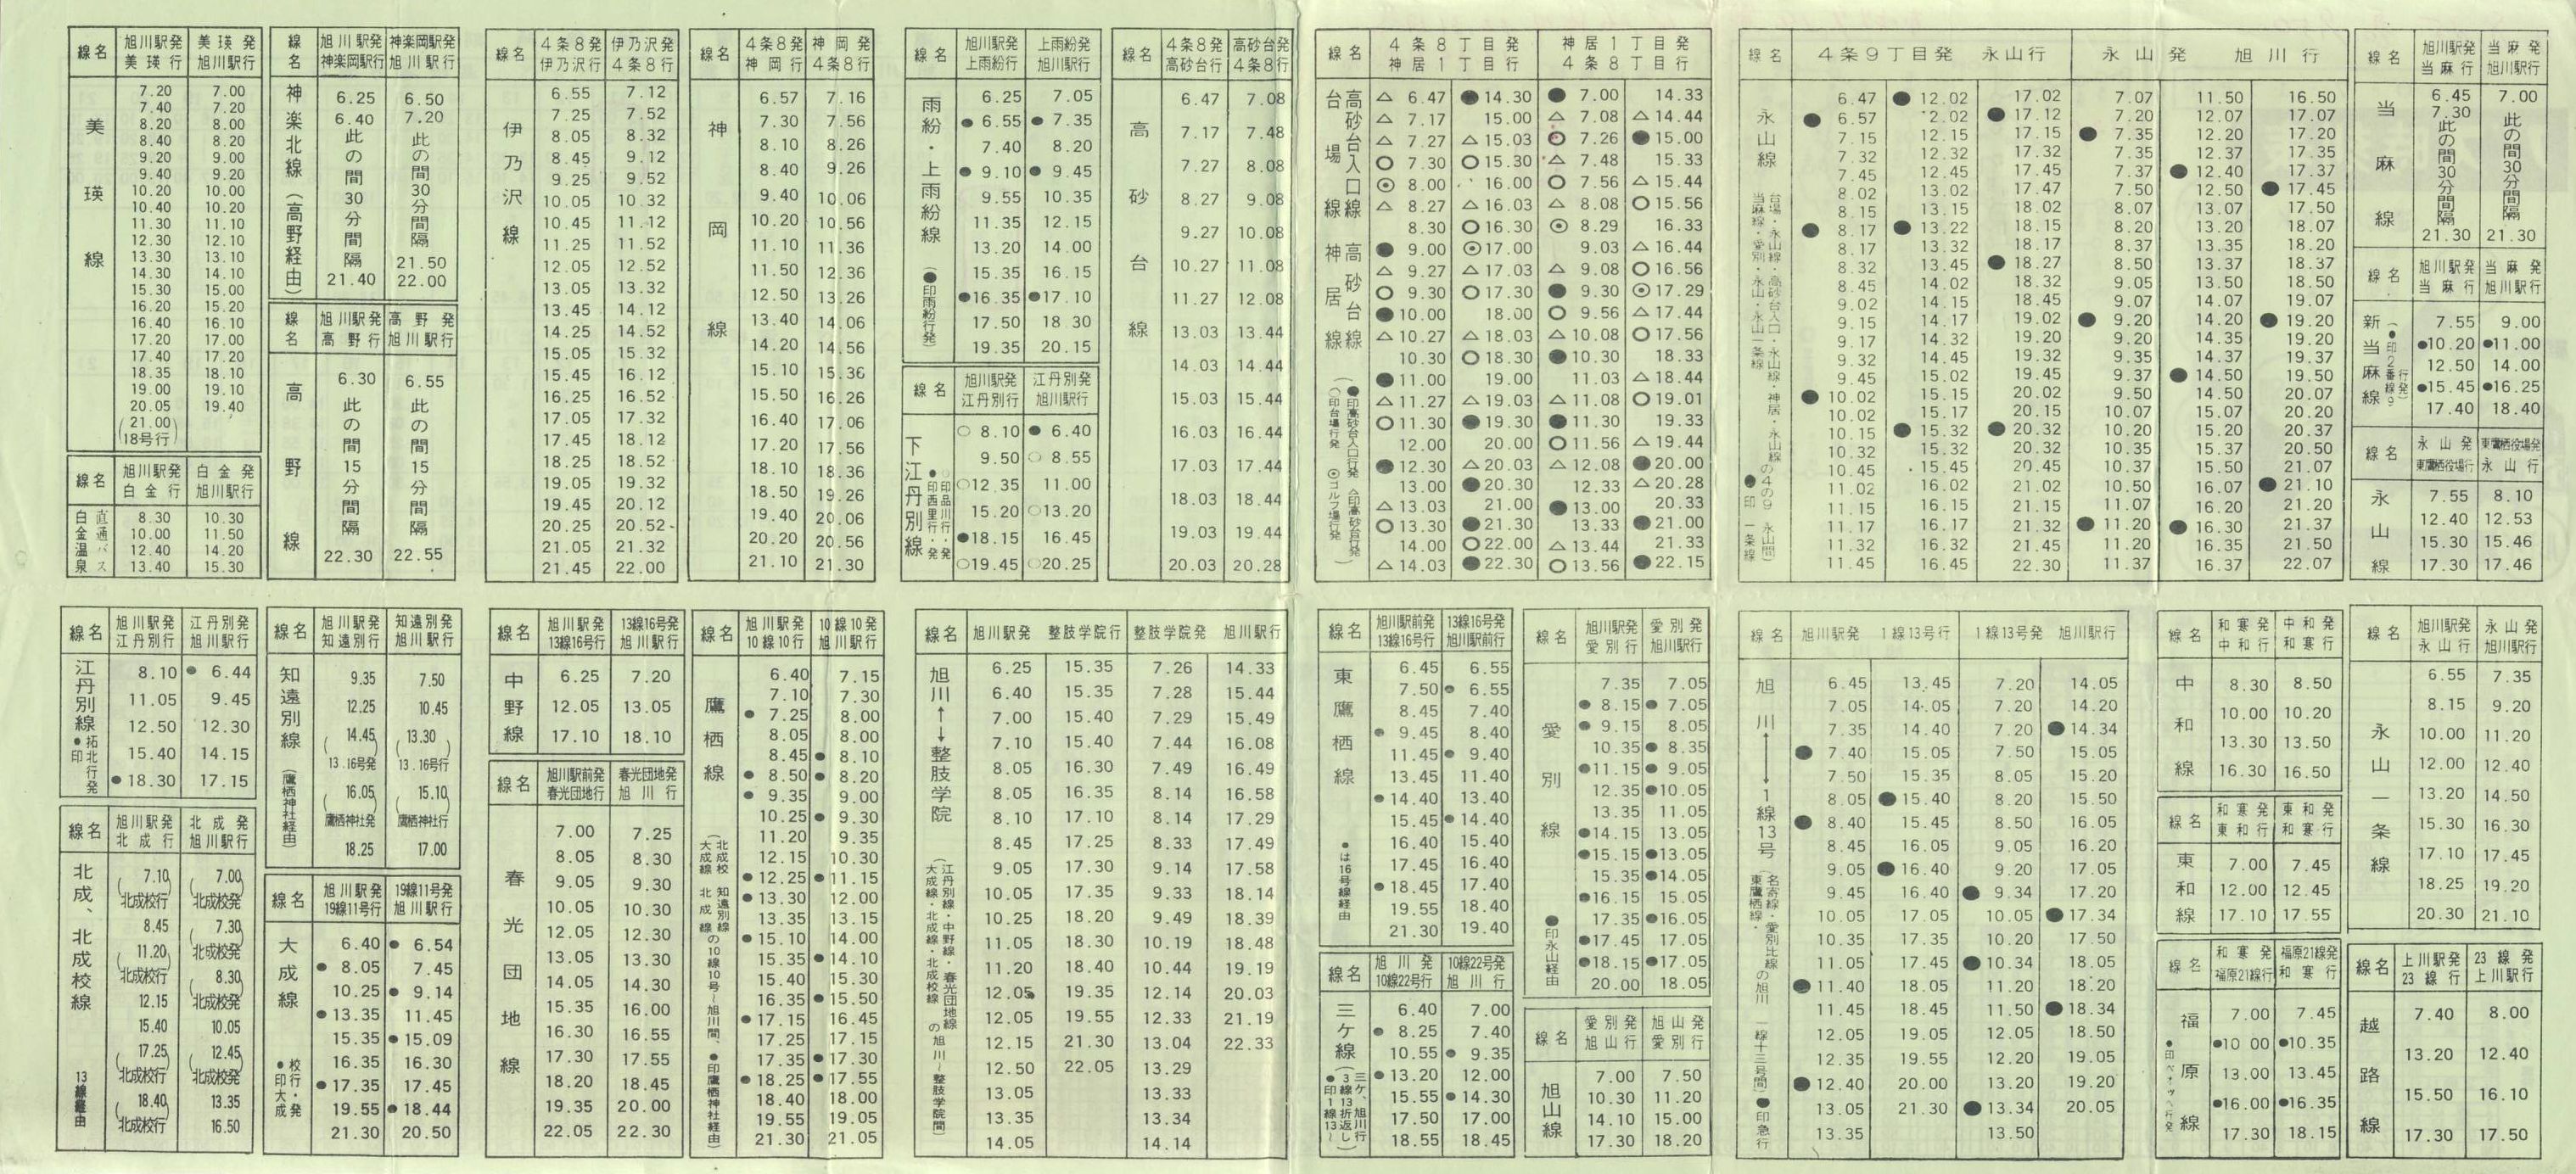 線名 旭川駅発美瑛行 美瑛発旭川駅行
美瑛線
7.20 7.00
7.40 7.20
8.20 8.00
8.40 8.20
9.20 9.00
9.40 9.20
10.20 10.00
10.40 10.20
11.30 11.10
12.30 12.10
13.30 13.10
14.30 14.10
15.30 15.00
16.20 15.20
16.40 16.10
17.20 17.00
17.40 17.20
18.35 18.10
19.00 19.10
20.05 19.40
(21.00 18号行)
線名 旭川駅発白金行 白金発旭川駅行
白金温泉 直通バス
8.30 10.30
10.00 11.50
12.40 14.20
13.40 15.30
線名 旭川駅発神楽岡駅行 神楽岡駅発旭川駅行
神楽北線(高野経由)
6.25 6.50
6.40 7.20
此の間30分間隔 此の間30分間隔
21.40 21.50
22.00
線名 旭川駅発高野行 高野発旭川駅行
高野線
6.30 6.55
此の間15分間隔 此の間15分間隔
22.30 22.55
線名 4条8発伊乃沢行 伊乃沢発4条8行
伊乃沢線
6.55 7.12
7.25 7.52
8.05 8.32
8.45 9.12
9.25 9.52
10.05 10.32
10.45 11.12
11.25 11.52
12.05 12.52
13.05 13.32
13.45 14.12
14.25 14.52
15.05 15.32
15.45 16.12
16.25 16.52
17.05 17.32
17.45 18.12
18.25 18.52
19.05 19.32
19.45 20.12
20.25 20.52
21.05 21.32
21.45 22.00
線名 4条8発神岡行 神岡発4条8行
神岡線
6.57 7.16
7.30 7.56
8.10 8.26
8.40 9.26
9.40 10.06
10.20 10.56
11.10 11.36
11.50 12.36
12.50 13.26
13.40 14.06
14.20 14.56
15.10 15.36
15.50 16.26
16.40 17.06
17.20 17.56
18.10 18.36
18.50 19.26
19.40 20.06
20.20 20.56
21.10 21.30
線名 旭川駅発上雨紛行 上雨紛発旭川駅行
雨紛・上雨紛線(●印雨紛行発)
6.25 7.05
●6.55 ●7.35
7.40 8.20
●9.10 ●9.45
9.55 10.35
11.35 12.15
13.20 14.00
15.35 16.15
●16.35 ●17.10
17.50 18.30
19.35 20.15
線名 旭川駅発江丹別行 江丹別発旭川駅行
下江丹別線 ○印品川行・発 ●印西里行・発
○8.10 ●6.40
9.50 ○8.55
○12.35 11.00
15.20 ○13.20
●18.15 16.45
○19.45 ○20.25
線名 4条8発高砂台行 高砂台発4条8行
高砂台線
6.47 7.08
7.17 7.48
7.27 8.08
8.27 9.08
9.27 10.08
10.27 11.08
11.27 12.08
13.03 13.44
14.03 14.44
15.03 15.44
16.03 16.44
17.03 17.44
18.03 18.44
19.03 19.44
20.03 20.28
線名 4条8丁目発神居1丁目行 神居1丁目発4条8丁目行
高砂台入口線 台場線 高砂台線 神居線
(●印高砂台入口行発 △印高砂台行発 ○印台場行発 ◎ゴルフ場行発)
△6.47 ●14.30 ●7.00 14.33
△7.17 15.00 △7.08 △14.44
△7.27 △15.03 ○7.26 ●15.00
○7.30 ○15.30 △7.48 15.33
◎8.00 16.00 ○7.56 △15.44
△8.27 △16.03 △8.08 ○15.56
8.30 ○16.30 ◎8.29 16.33
●9.00 ◎17.00 9.03 △16.44
△9.27 △17.03 △9.08 ○16.56
○9.30 ○17.30 ●9.30 ◎17.29
●10.00 18.00 ○9.56 △17.44
△10.27 △18.03 △10.08 ○17.56
10.30 ○18.30 ●10.30 18.33
●11.00 19.00 11.03 △18.44
△11.27 △19.03 △11.08 ○19.01
○11.30 ●19.30 ●11.30 19.33
12.00 20.00 ○11.56 △19.44
●12.30 △20.03 △12.08 ●20.00
13.00 ●20.30 12.33 △20.28
△13.03 21.00 ●13.00 20.33
○13.30 ●21.30 13.33 ●21.00
14.00 ○22.00 △13.44 21.33
△14.03 ●22.30 ○13.56 ●22.15
線名 4条9丁目発 永山行 永山発 旭川行
永山線
台場・永山線・高砂台入口・永山線・神居・永山線の4の9 永山間
当麻線・愛別・永山・永山一条線
●印 一条線
6.47 ●12.02 17.02 7.07 11.50 16.50
●6.57 12.02 ●17.12 7.20 12.07 17.07
7.15 12.15 17.15 ●7.35 12.20 17.20
7.32 12.32 17.32 7.35 12.37 17.35
7.45 12.45 17.45 7.37 ●12.40 17.37
8.02 13.02 17.47 7.50 12.50 ●17.45
8.15 13.15 18.02 8.07 13.07 17.50
●8.17 ●13.22 18.15 8.20 13.20 18.07
8.17 13.32 18.17 8.37 13.35 18.20
8.32 13.45 ●18.27 8.50 13.37 18.37
8.45 14.02 18.32 9.05 13.50 18.50
9.02 14.15 18.45 9.07 14.07 19.07
9.15 14.17 19.02 ●9.20 14.20 ●19.20
9.17 14.32 19.20 9.20 14.35 19.20
9.32 14.45 19.32 9.35 14.37 19.37
9.45 15.02 19.45 9.37 ●14.50 19.50
●10.02 15.15 20.02 9.50 14.50 20.07
10.02 15.17 20.15 10.07 15.07 20.20
10.15 ●15.32 ●20.32 10.20 15.20 20.37
10.32 15.32 20.32 10.35 15.37 20.50
10.45 15.45 20.45 10.37 15.50 21.07
11.02 16.02 21.02 10.50 16.07 ●21.10
11.15 16.15 21.15 11.07 16.20 21.20
11.17 16.17 21.32 ●11.20 ●16.30 21.37
11.32 16.32 21.45 11.20 16.35 21.50
11.45 16.45 22.30 11.37 16.37 22.07
線名 旭川駅発当麻行 当麻発旭川駅行
当麻線
6.45 7.00
7.30
此の間30分間隔 此の間30分間隔
21.30 21.30
線名 旭川駅発当麻行 当麻発旭川駅行
新当麻線(●印2番線9行発)
7.55 9.00
●10.20 ●11.00
12.50 14.00
●15.45 ●16.25
17.40 18.40
線名 永山発東鷹栖役場行 東鷹栖役場発永山行
永山線
7.55 8.10
12.40 12.53
15.30 15.46
17.30 17.46
線名 旭川駅発江丹別行 江丹別発旭川駅行
江丹別線 ●印拓北行発
8.10 ●6.44
11.05 9.45
12.50 12.30
15.40 14.15
●18.30 17.15
線名 旭川駅発北成行 北成発旭川駅行
北成、北成校線 13線経由
(7.10 北成校行) (7.00 北成校発)
8.45 (7.30 北成校発)
(11.20 北成校行) (8.30 北成校発)
12.15 10.05
15.40 (12.45 北成校発)
(17.25 北成校行) 13.35
(18.40 北成校行) 16.50
線名 旭川駅発知遠別行 知遠別発旭川駅行
知遠別線(鷹栖神社経由)
9.35 7.50
12.25 10.45
(14.45 13.16号発) (13.30 13.16号行)
(16.05 鷹栖神社発) (15.10 鷹栖神社行)
18.25 17.00
線名 旭川駅発19線11号行 19線11号発旭川駅行
大成線 ●印大成校行・発
6.40 ●6.54
●8.05 7.45
10.25 ●9.14
●13.35 11.45
15.35 ●15.09
16.35 16.30
●17.35 17.45
19.55 ●18.44
21.30 20.50
線名 旭川駅発13線16号行 13線16号発旭川駅行
中野線
6.25 7.20
12.05 13.05
17.10 18.10
線名 旭川駅前発春光団地行 春光団地発旭川行
春光団地線
7.00 7.25
8.05 8.30
9.05 9.30
10.05 10.30
12.05 12.30
13.05 13.30
14.05 14.30
15.35 16.00
16.30 16.55
17.30 17.55
18.20 18.45
19.35 20.00
22.05 22.30
線名 旭川駅発10線10行 10線10発旭川駅行
鷹栖線
(北成校 知遠別線 大成線 北成線の10線10号~旭川間、●印鷹栖神社経由)
6.40 7.15
7.10 7.30
●7.25 8.00
8.05 8.00
8.45 ●8.10
●8.50 ●8.20
●9.35 9.00
10.25 ●9.30
11.20 9.35
12.15 10.30
●12.25 ●11.15
●13.30 12.00
13.35 13.15
●15.10 14.00
15.35 ●14.10
15.40 15.30
16.35 ●15.50
●17.15 16.45
17.25 17.15
17.35 ●17.30
●18.25 ●17.55
18.40 18.00
19.55 19.05
21.30 21.05
線名 旭川駅発 整肢学院行 整肢学院発 旭川駅行
旭川←→整肢学院
(江丹別線・中野線・春光団地線 大成線・北成線・北成校線の旭川~整肢学院間)
6.25 15.35 7.26 14.33
6.40 15.35 7.28 15.44
7.00 15.40 7.29 15.49
7.10 15.40 7.44 16.08
8.05 16.30 7.49 16.49
8.05 16.35 8.14 16.58
8.10 17.10 8.14 17.29
8.45 17.25 8.33 17.49
9.05 17.30 9.14 17.58
10.05 17.35 9.33 18.14
10.25 18.20 9.49 18.39
11.05 18.30 10.19 18.48
11.20 18.40 10.44 19.19
12.05 19.35 12.14 20.03
12.05 19.55 12.33 21.19
12.15 21.30 13.04 22.33
12.50 22.05 13.29
13.05 13.33
13.35 13.34
14.05 14.14
線名 旭川駅前発13線16号行 13線16号発旭川駅前行
東鷹栖線 ●は16号線経由
6.45 6.55
7.50 ●6.55
8.45 7.40
●9.45 8.40
11.45 ●9.40
13.45 11.40
●14.40 13.40
15.45 ●14.40
16.40 15.40
17.45 16.40
●18.45 17.40
19.55 18.40
21.30 19.40
線名 旭川発10線22号行 10線22号発旭川行
三ケ線(三ケ、旭川行 3線13折返し ●印1線13~)
6.40 7.00
●8.25 7.40
10.55 ●9.35
●13.20 12.00
15.55 ●14.30
17.50 17.00
18.55 18.45
線名 旭川駅発愛別行 愛別発旭川駅行
愛別線 ●印永山経由
7.35 7.05
●8.15 ●7.05
●9.15 8.05
10.35 ●8.35
●11.15 ●9.05
12.35 ●10.05
13.35 11.05
●14.15 13.05
●15.15 ●13.05
15.35 ●14.05
●16.15 15.05
17.35 ●16.05
●17.45 17.05
●18.15 ●17.05
20.00 18.05
線名 愛別発旭山行 旭山発愛別行
旭山線
7.00 7.50
10.30 11.20
14.10 15.00
17.30 18.20
線名 旭川駅発 1線13号行 1線13号発 旭川駅行
旭川←→1線13号
(名寄線・愛別比線の旭川 一線十三号間) 東鷹栖線・ ●印急行
6.45 13.45 7.20 14.05
7.05 14.05 7.20 14.20
7.35 14.40 7.20 ●14.34
●7.40 15.05 7.50 15.05
7.50 15.35 8.05 15.20
8.05 ●15.40 8.20 15.50
●8.40 15.45 8.50 16.05
8.45 16.05 9.05 16.20
9.05 ●16.40 9.20 17.05
9.45 16.40 ●9.34 17.20
10.05 17.05 10.05 ●17.34
10.35 17.35 10.20 17.50
11.05 17.45 ●10.34 18.05
●11.40 18.05 11.20 18.20
11.45 18.45 11.50 ●18.34
12.05 19.05 12.05 18.50
12.35 19.55 12.20 19.05
●12.40 20.00 13.20 19.20
13.05 21.30 ●13.34 20.05
13.35 13.50
線名 和寒発中和行 中和発和寒行
中和線
8.30 8.50
10.00 10.20
13.30 13.50
16.30 16.50
線名 和寒発東和行 東和発和寒行
東和線
7.00 7.45
12.00 12.45
17.10 17.55
線名 和寒発福原21線行 福原21線発和寒行
福原線
7.00 7.45
●10 00 ●10.35
13.00 13.45
●16.00 ●16.35
17.30 18.15
線名 旭川駅発永山行 永山発旭川駅行
永山一条線
6.55 7.35
8.15 9.20
10.00 11.20
12.00 12.40
13.20 14.50
15.30 16.30
17.10 17.45
18.25 19.20
20.30 21.10
線名 上川駅発23線行 23線発上川駅行
越路線
7.40 8.00
13.20 12.40
15.50 16.10
17.30 17.50